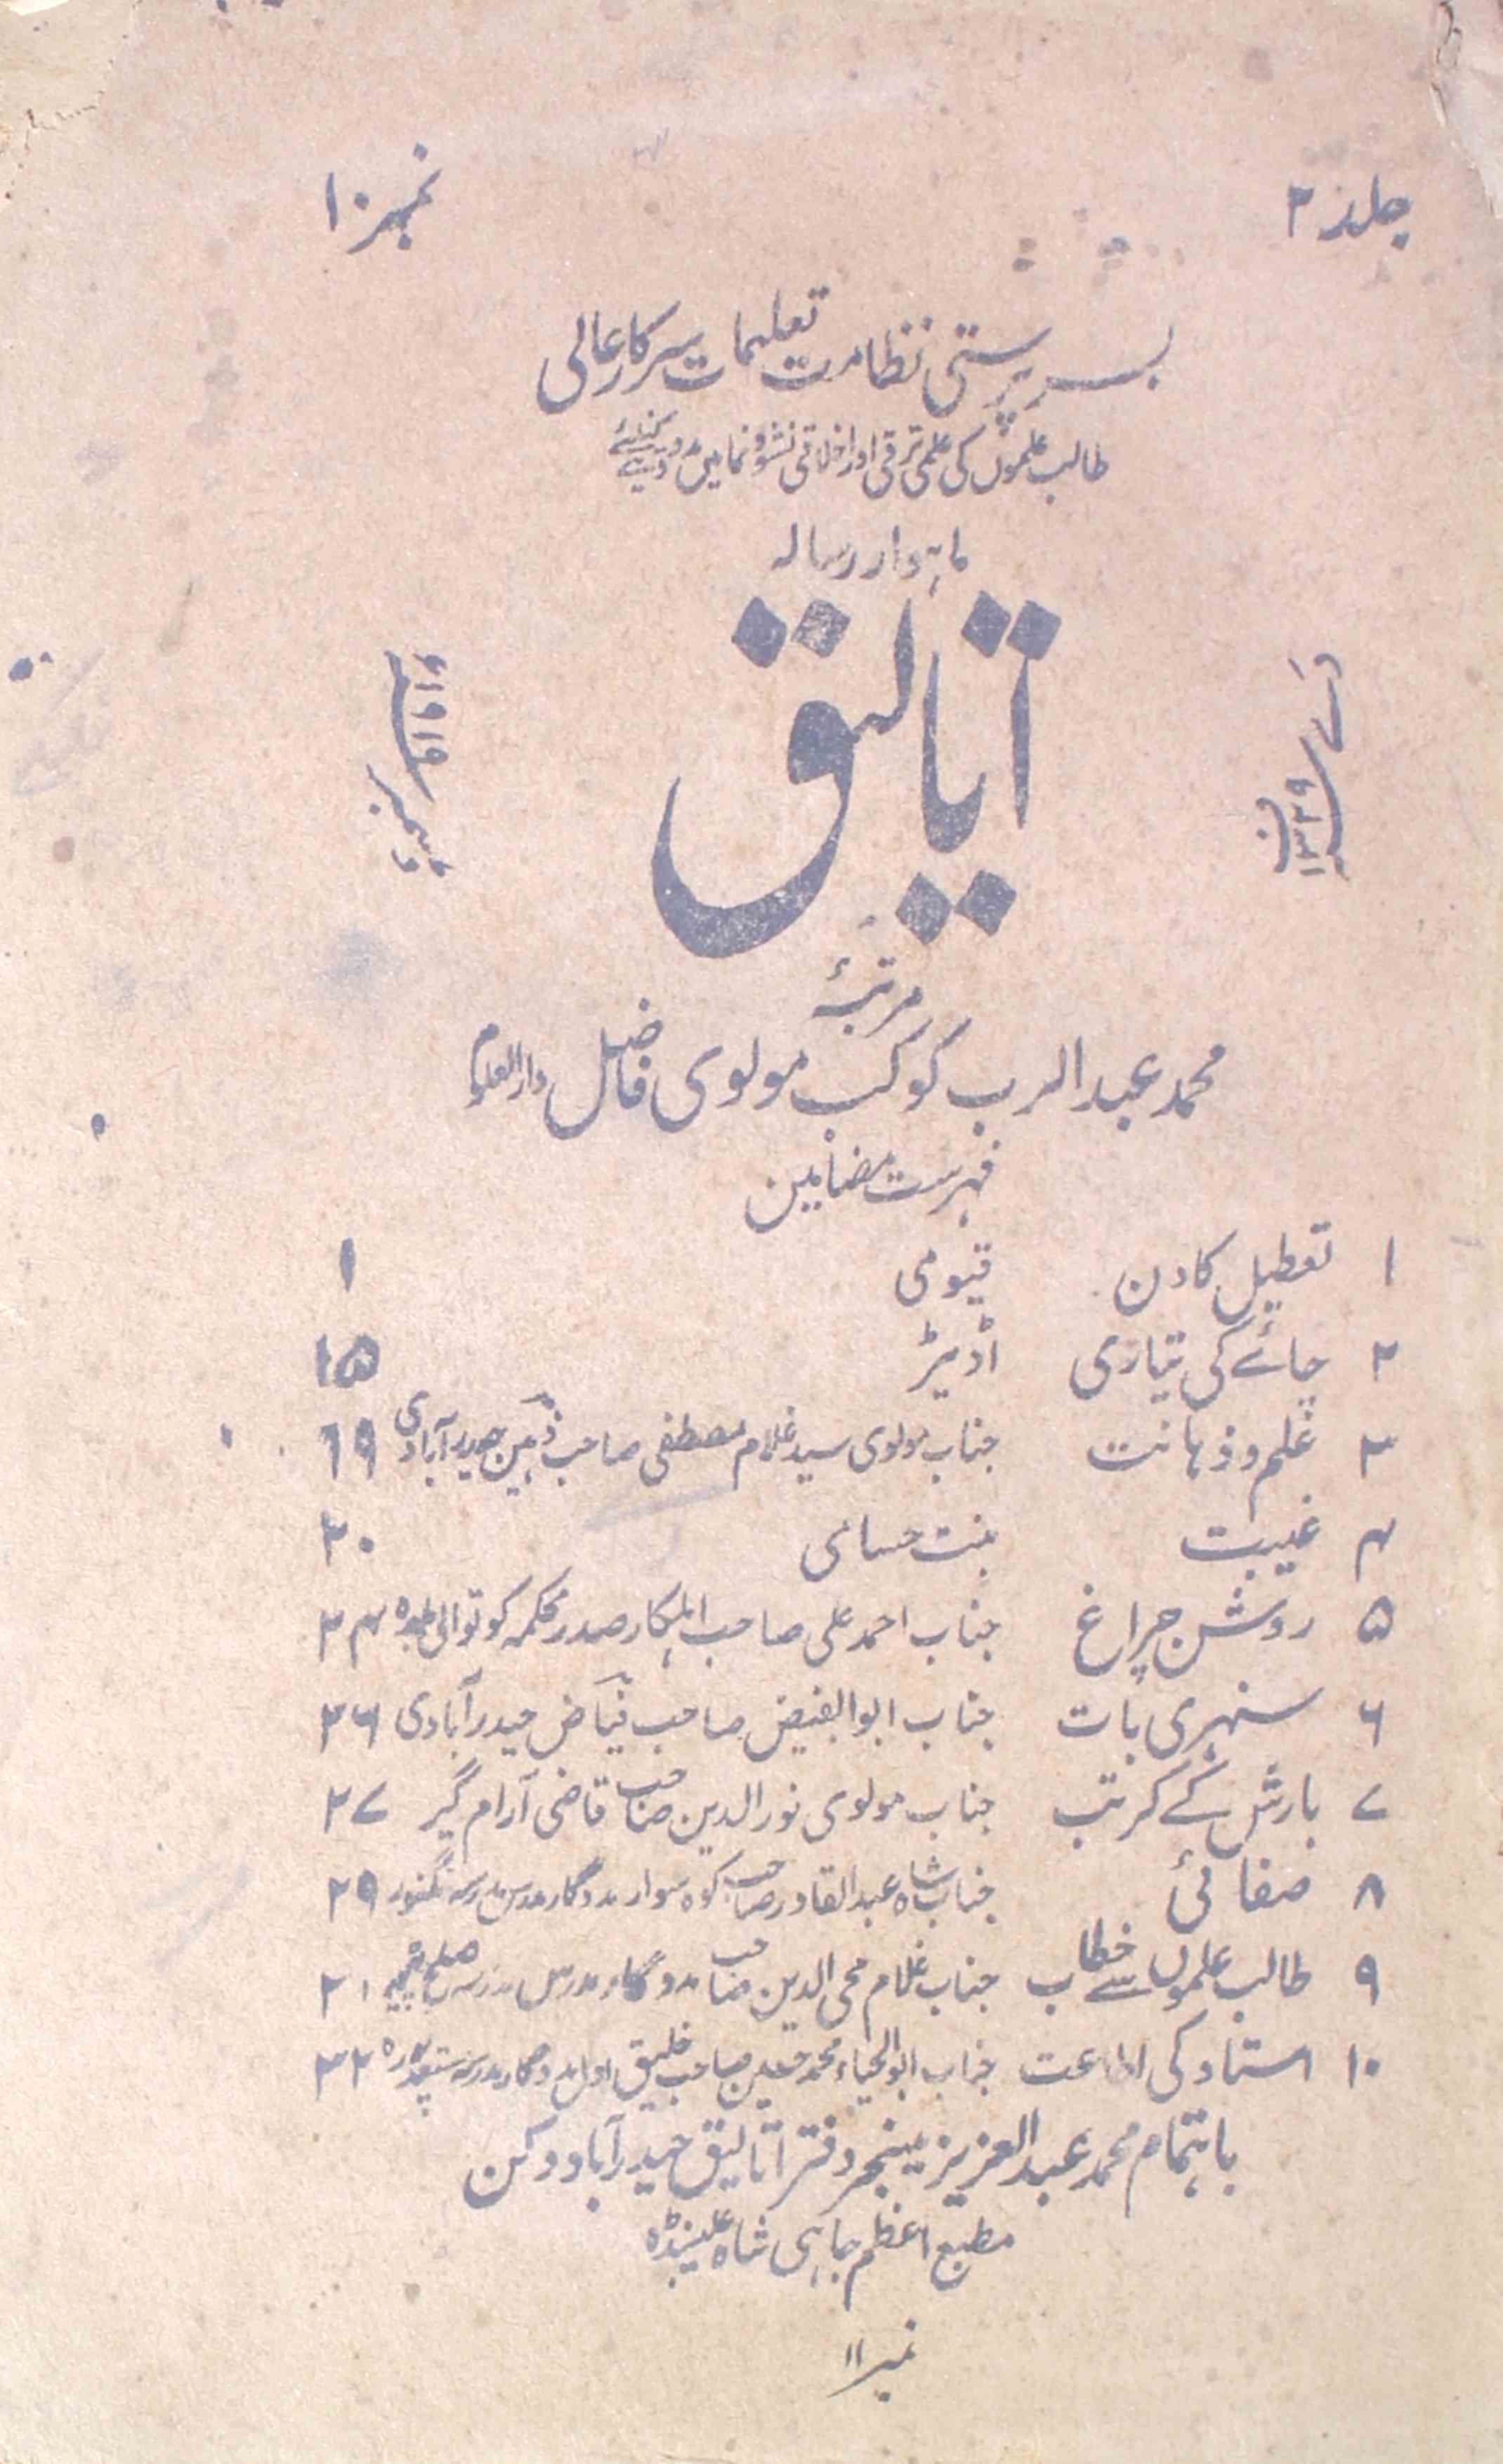 جلد ۲ نمبر ۱۰
بسرپرستی نظامت تعلیمات سرکار عالی
طالب علموں کی علمی ترقی اور اخلاقی نشو و نما میں مدد دینے کیلئے
ماہوار رسالہ
اتالیق
دے ۱۳۲۹ ف
ڈسمبر ۱۹۱۹ء
مرتبۂ
محمد عبدالرب کوکب مولوی فاضل دارالعلوم
فہرست مضامین
۱ تعطیل کا دن قیومی ۱
۲ چائے کی تیاری اڈیٹر ۱۵
۳ علم و ذہانت جناب مولوی سید غلام مصطفی صاحب ذہین حیدرآبادی ۱۹
۴ غیبت بنت حسامی ۲۰
۵ روشن چراغ جناب احمد علی صاحب اہلکار صدر محکمہ کوتوالی بلدہ ۲۴
۶ سنہری بات جناب ابوالفیض صاحب فیاض حیدرآبادی ۲۶
۷ بارش کے کرتب جناب مولوی نورالدین صاحب قاضی آرام گیر ۲۷
۸ صفائی جناب شاہ عبدالقادر صاحب کوہ سوار مددگار مدرس مدرسہ ۲۹
۹ طالب علموں سے خطاب جناب غلام محی الدین صاحب مددگار مدرس مدرسہ ۳۱
۱۰ استاد کی اطاعت جناب ابوالحیاء محمد حسین صاحب خلیق اول مددگار مدرسہ ۳۲
باہتمام محمد عبدالعزیز مینیجر دفتر اتالیق حیدرآباد دکن
مطبع اعظم جاہی شاہ علی بنڈہ
نمبر ۱۱